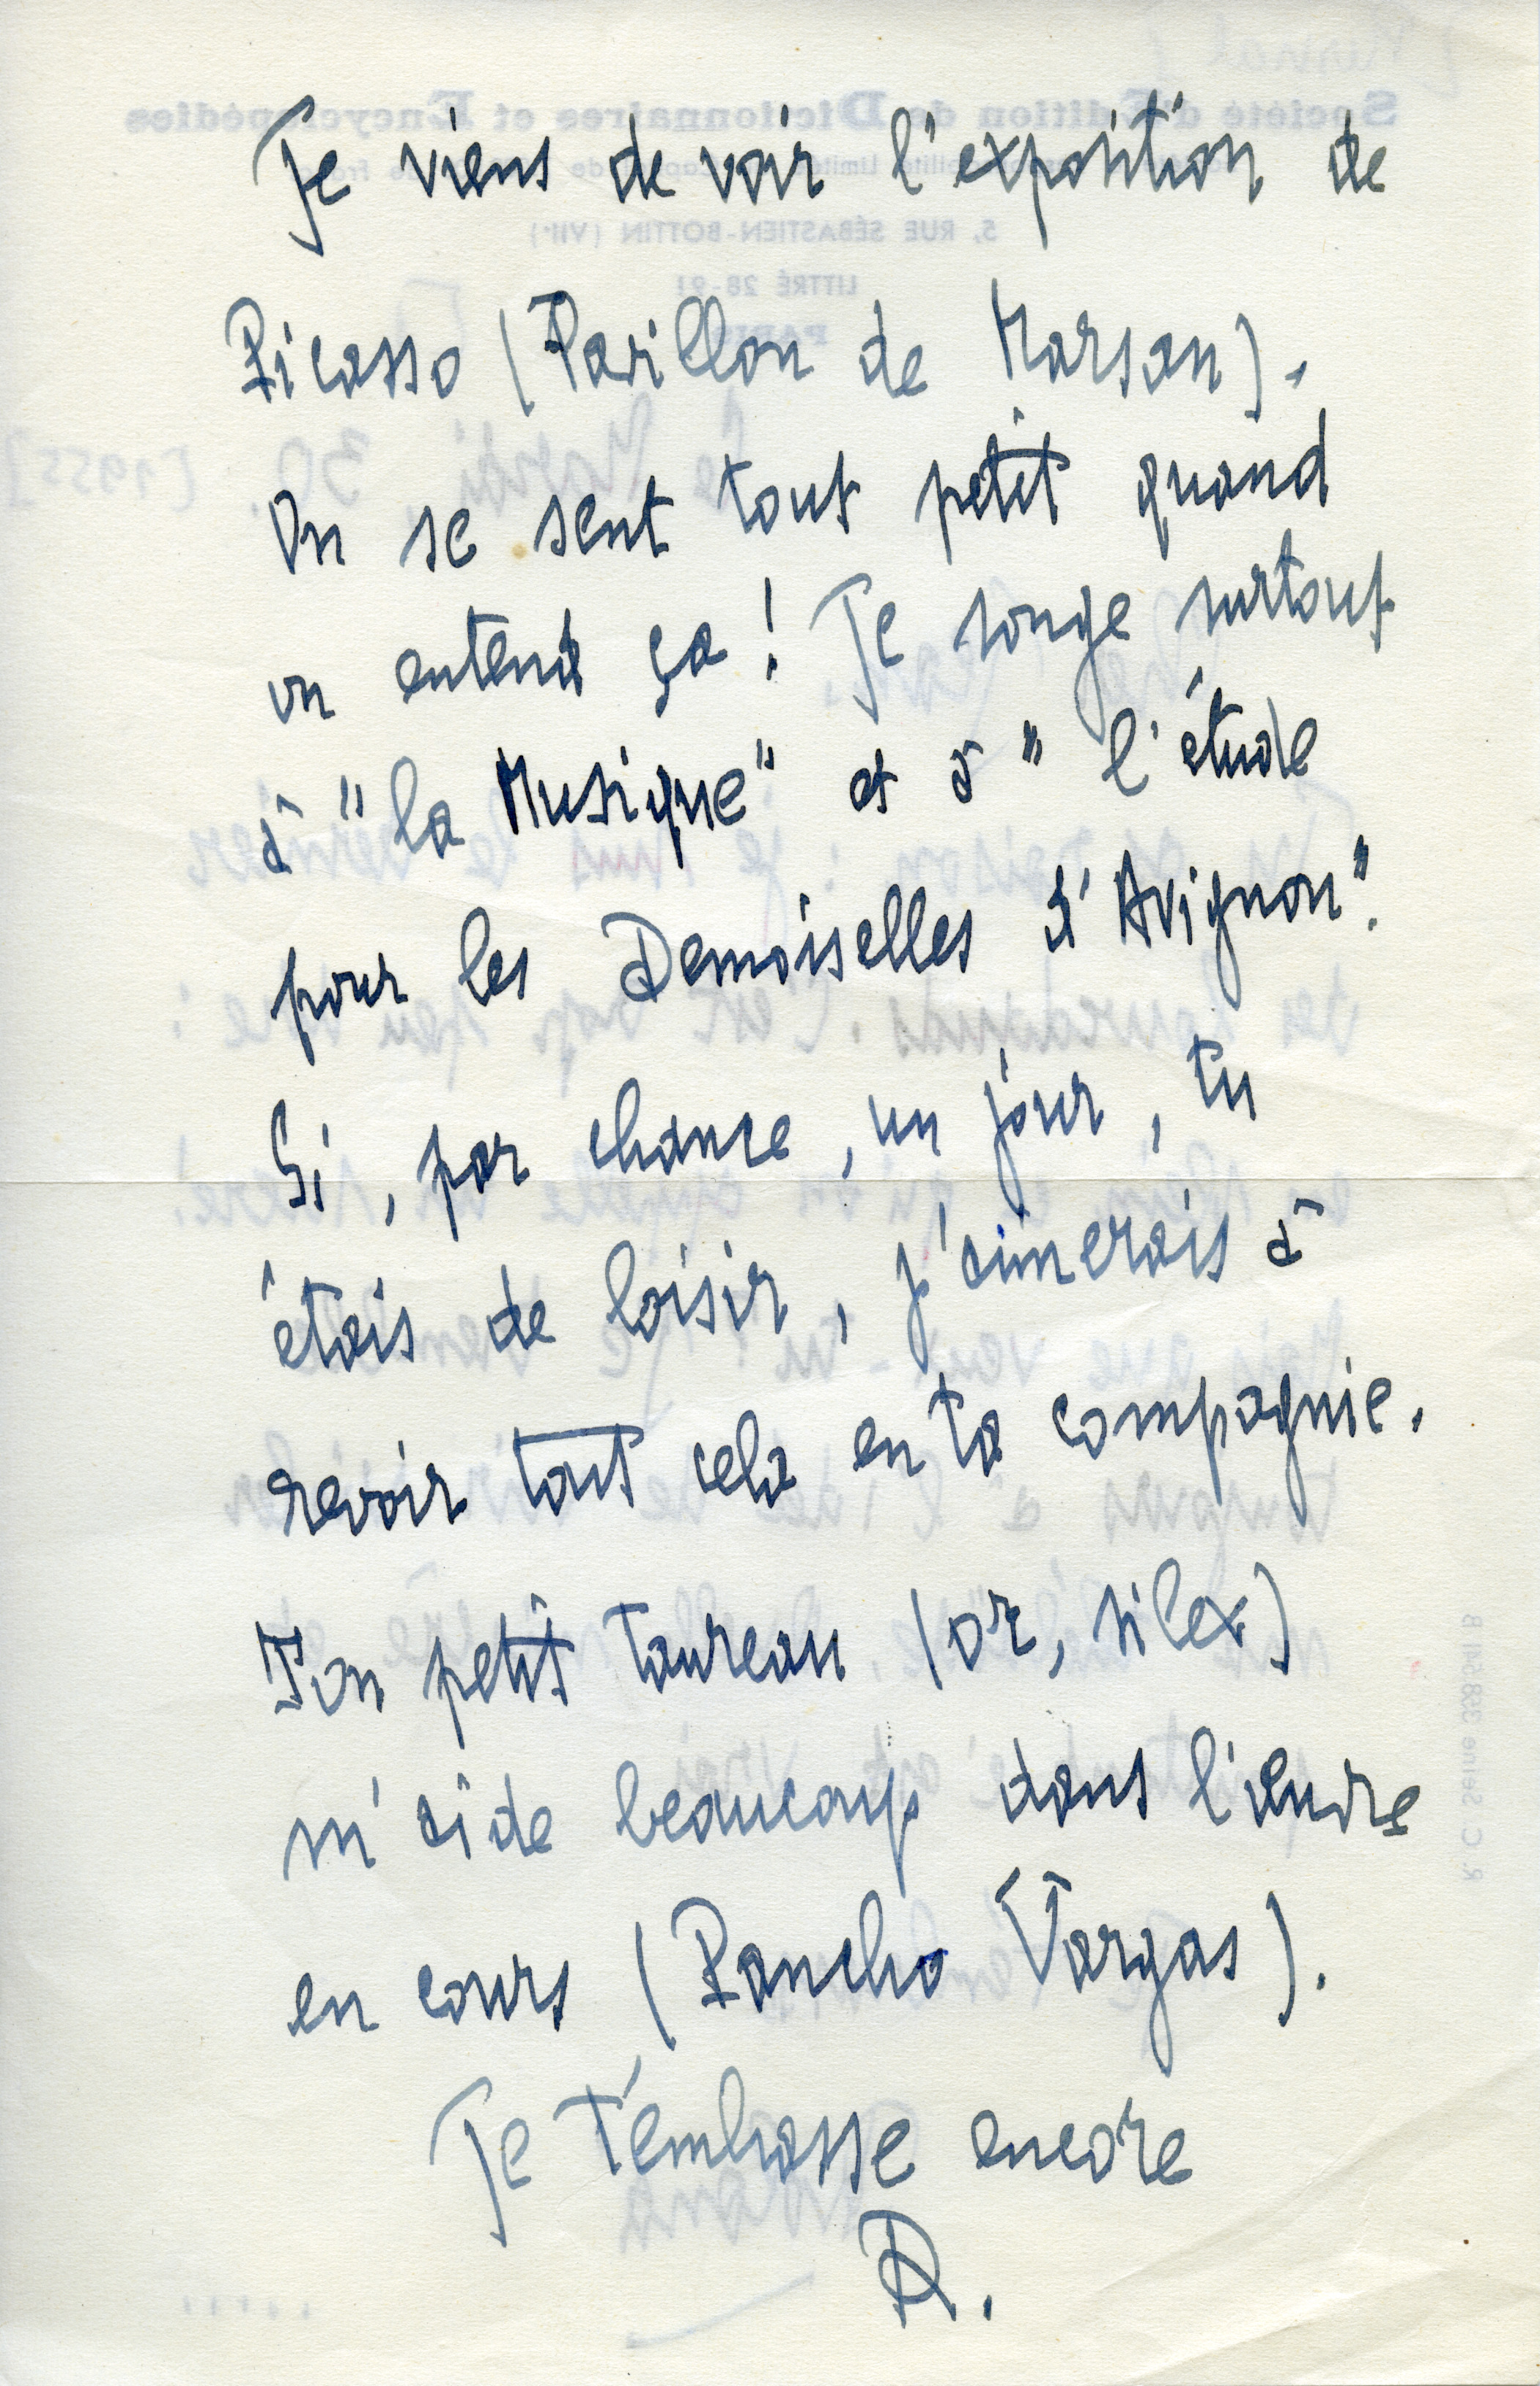 Je viens de voir l'exposition de
Picasso (Pavillon de Marsan).
On se sent tout petit quand
on entend ça ! Je songe surtout
à "la Musique" et à "l'étude
pour les Demoiselles d'Avignon".
Si, par chance, un jour, tu
étais de loisir, j'aimerais à
revoir tout cela en ta compagnie.
Ton petit taureau (or, silex)
m'aide beaucoup dans l'œuvre
en cours (Pancho Vargas).
Je t'embrasse encore
R.